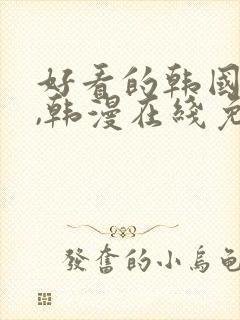 好看的韩國
,韩漫在线免
發奮的小烏龜